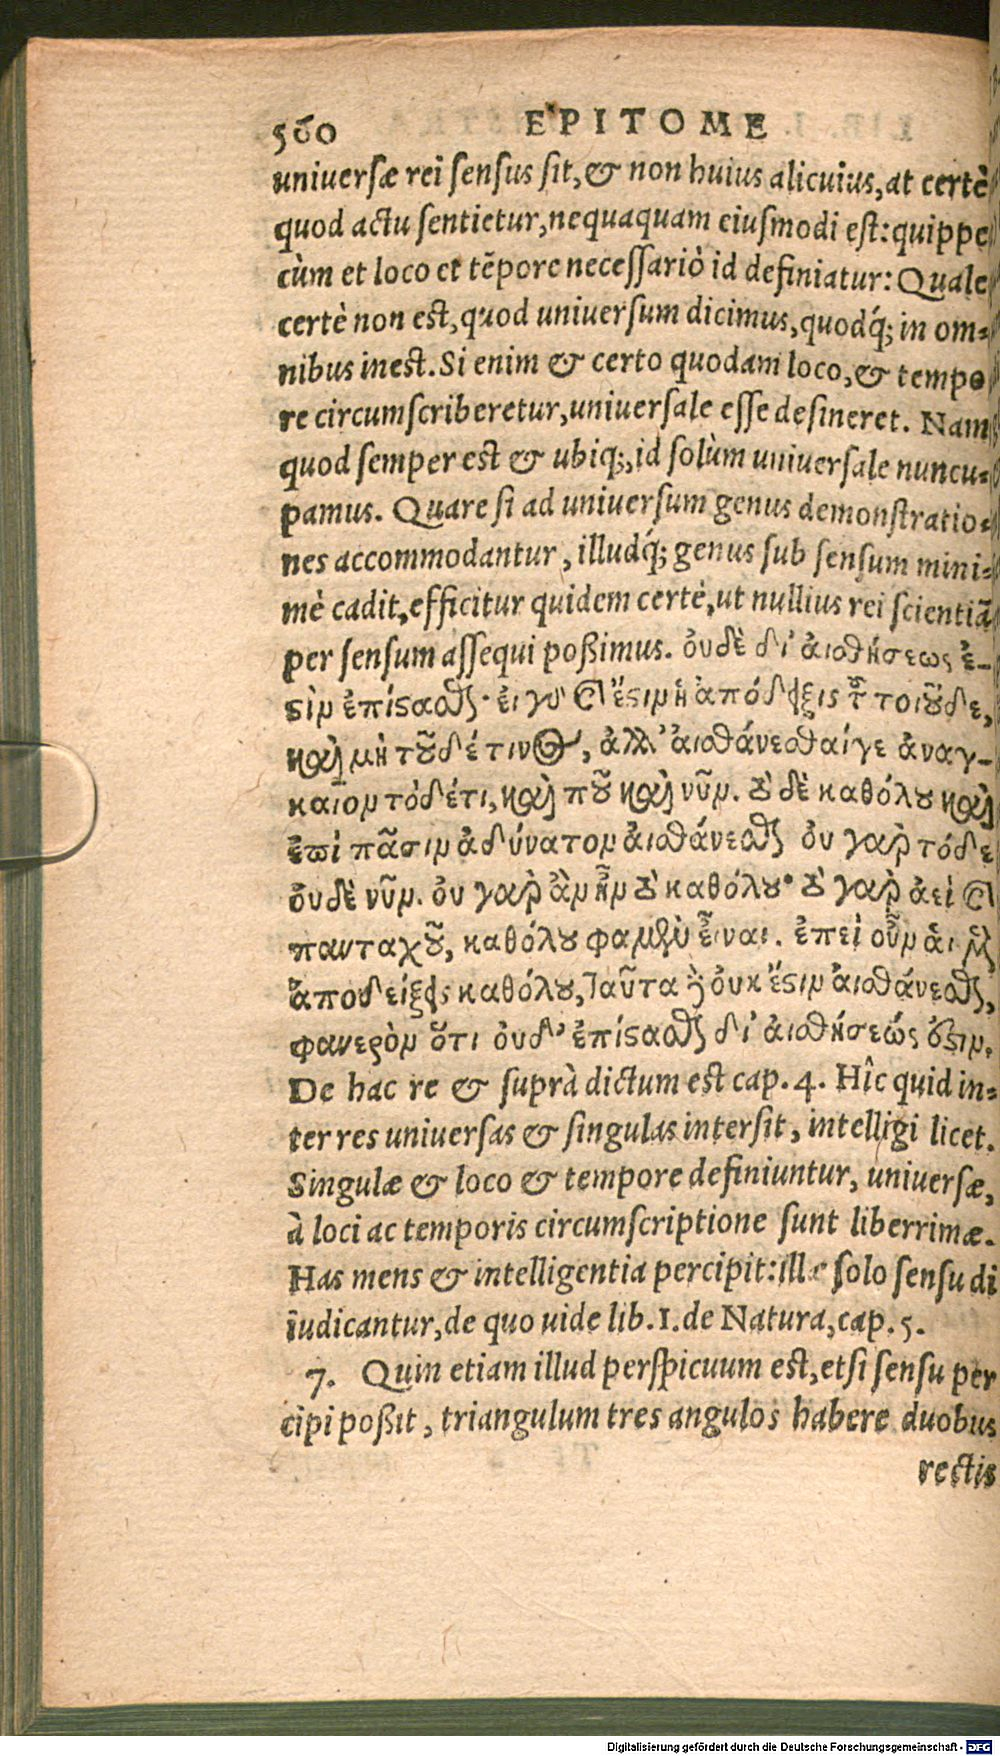 560 EPITOME
uniuersæ rei sensus sit, & non huius alicuius, at certè
quod actu sentietur, nequaquam eiusmodi est: quippe
cùm et loco et tẽpore necessariò id definiatur: Quale
certè non est, quod uniuersum dicimus, quodq́; in om=
nibus inest. Si enim & certo quodam loco, & tempo
re circumscriberetur, uniuersale esse desineret. Nam
quod semper est & ubiq;, id solùm uniuersale nuncu=
pamus. Quare si ad uniuersum genus demonstratio=
nes accommodantur, illudq́; genus sub sensum mini=
mè cadit, efficitur quidem certè, ut nullius rei scientiã
per sensum assequi poßimus. οὐδὲ δι' αἰσθήσεως ἔ-
στιν ἐπίστασθαι· εἰ γὰρ καὶ ἔστιν ἡ ἀπόδειξις τοῦ τοιοῦδε,
καὶ μὴ τοῦδέ τινος, ἀλλ' αἰσθάνεσθαί γε ἀναγ-
καῖον τόδέ τι, καὶ ποῦ καὶ νῦν. τὸ δὲ καθόλου καὶ
ἐπὶ πᾶσιν ἀδύνατον αἰσθάνεσθαι οὐ γὰρ τόδε
οὐδὲ νῦν. οὐ γὰρ ἂν ἦν τὸ καθόλου· τὸ γὰρ ἀεὶ καὶ
πανταχοῦ, καθόλου φαμὲν εἶναι. ἐπεὶ οὖν αἱ μὲν
ἀποδείξεις καθόλου, ταῦτα δ' οὐκ ἔστιν αἰσθάνεσθαι,
φανερὸν ὅτι οὐδ' ἐπίστασθαι δι' αἰσθήσεώς ἐστιν.
De hac re & suprà dictum est cap. 4. Hîc quid in=
ter res uniuersas & singulas intersit, intelligi licet.
Singulæ & loco & tempore definiuntur, uniuersæ,
à loci ac temporis circumscriptione sunt liberrimæ.
Has mens & intelligentia percipit: illæ solo sensu di
iudicantur, de quo uide lib. 1. de Natura, cap. 5.
7. Quin etiam illud perspicuum est, etsi sensu per
cipi poßit, triangulum tres angulos habere duobus
rectis
Digitalisierung gefördert durch die Deutsche Forschungsgemeinschaft - DFG